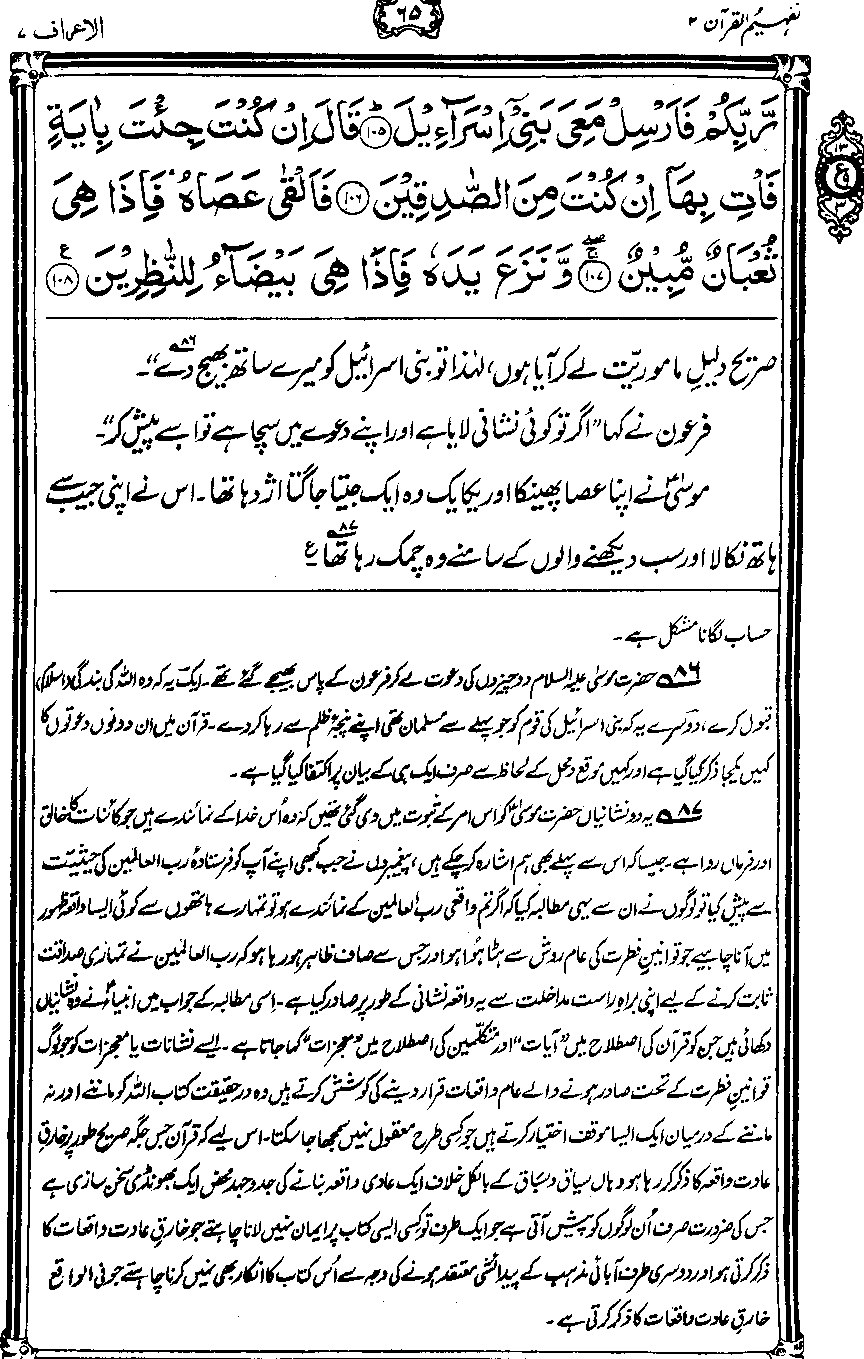 تفہیم القرآن ۲
۶۵
الاعراف ۷
رَّبِّكُمْ فَاَرْسِلْ مَعِيَ بَنِيْٓ اِسْرَآءِيْلَ ؕ۝۱۰۵ قَالَ اِنْ كُنْتَ جِئْتَ بِاٰيَةٍ
فَاْتِ بِهَآ اِنْ كُنْتَ مِنَ الصّٰدِقِيْنَ ۝۱۰۶ فَاَلْقٰى عَصَاهُ فَاِذَا هِيَ
ثُعْبَانٌ مُّبِيْنٌ ۝۱۰۷ وَّ نَزَعَ يَدَهٗ فَاِذَا هِيَ بَيْضَآءُ لِلنّٰظِرِيْنَ ۝۱۰۸
۱۳
ع
۳
صریح دلیلِ ماموریّت لے کر آیا ہوں، لہٰذا تو بنی اسرائیل کو میرے ساتھ بھیج دے“۔ ۸۶
فرعون نے کہا ”اگر تو کوئی نشانی لایا ہے اور اپنے دعوے میں سچا ہے تو اسے پیش کر“۔
موسیٰؑ نے اپنا عصا پھینکا اور یکایک وہ ایک جیتا جاگتا اژدہا تھا۔ اس نے اپنی جیب سے
ہاتھ نکالا اور سب دیکھنے والوں کے سامنے وہ چمک رہا تھا ۸۷ ع
حساب لگانا مشکل ہے۔
۸۶ حضرت موسیٰ علیہ السلام دو چیزوں کی دعوت لے کر فرعون کے پاس بھیجے گئے تھے۔ ایک یہ کہ وہ اللہ کی بندگی (اسلام)
قبول کرے، دوسرے یہ کہ بنی اسرائیل کی قوم کو جو پہلے سے مسلمان تھی اپنے پنجۂ ظلم سے رہا کر دے۔ قرآن میں ان دونوں دعوتوں کا
کہیں یکجا ذکر کیا گیا ہے اور کہیں موقع و محل کے لحاظ سے صرف ایک ہی کے بیان پر اکتفا کیا گیا ہے۔
۸۷ یہ دو نشانیاں حضرت موسیٰؑ کو اس امر کے ثبوت میں دی گئی تھیں کہ وہ اُس خدا کے نمائندے ہیں جو کائنات کا خالق
اور فرماں روا ہے۔ جیسا کہ اس سے پہلے بھی ہم اشارہ کر چکے ہیں، پیغمبروں نے جب کبھی اپنے آپ کو فرستادۂ رب العالمین کی حیثیت
سے پیش کیا تو لوگوں نے ان سے یہی مطالبہ کیا کہ اگر تم واقعی رب العالمین کے نمائندے ہو تو تمہارے ہاتھوں سے کوئی ایسا واقعہ ظہور
میں آنا چاہیے جو قوانینِ فطرت کی عام روش سے ہٹا ہُوا ہو اور جس سے صاف ظاہر ہو رہا ہو کہ رب العالمین نے تمہاری صداقت
ثابت کرنے کے لیے اپنی براہِ راست مداخلت سے یہ واقعہ نشانی کے طور پر صادر کیا ہے۔ اِسی مطالبہ کے جواب میں انبیاءؑ نے وہ نشانیاں
دکھائی ہیں جن کو قرآن کی اصطلاح میں ”آیات“ اور متکلمین کی اصطلاح میں ”معجزات“ کہا جاتا ہے۔ ایسے نشانات یا معجزات کو جو لوگ
قوانینِ فطرت کے تحت صادر ہونے والے عام واقعات قرار دینے کی کوشش کرتے ہیں وہ درحقیقت کتاب اللہ کو ماننے اور نہ
ماننے کے درمیان ایک ایسا موقف اختیار کرتے ہیں جو کسی طرح معقول نہیں سمجھا جا سکتا۔ اس لیے کہ قرآن جس جگہ صریح طور پر خارقِ
عادت واقعہ کا ذکر کر رہا ہو وہاں سیاق و سباق کے بالکل خلاف ایک عادی واقعہ بنانے کی جدوجہد محض ایک بھونڈی سخن سازی ہے
جس کی ضرورت صرف اُن لوگوں کو پیش آتی ہے جو ایک طرف تو کسی ایسی کتاب پر ایمان نہیں لانا چاہتے جو خارقِ عادت واقعات کا
ذکر کرتی ہو اور دوسری طرف آبائی مذہب کے پیدائشی معتقد ہونے کی وجہ سے اُس کتاب کا انکار بھی نہیں کرنا چاہتے جو فی الواقع
خارقِ عادت واقعات کا ذکر کرتی ہے۔